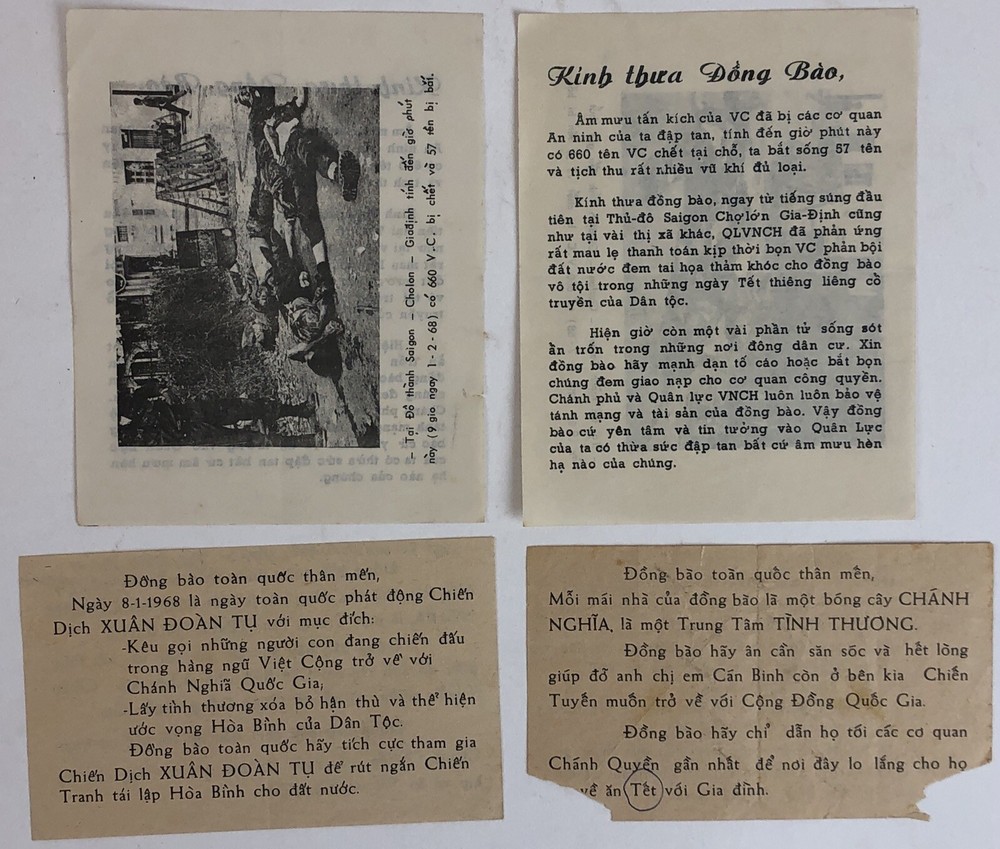 – Tại Đô thành Saigon – Cholon – Giađịnh tính đến giờ phút
này (9 gio ngay 1-2-68) có 660 V.C. bị chết và 57 tên bị bắt.
Kính thưa Đồng Bào,
Âm mưu tấn kích của VC đã bị các cơ quan
An ninh của ta đập tan, tính đến giờ phút này
có 660 tên VC chết tại chỗ, ta bắt sống 57 tên
và tịch thu rất nhiều vũ khí đủ loại.
Kính thưa đồng bào, ngay từ tiếng súng đầu
tiên tại Thủ-đô Saigon Chợlớn Gia-Định cũng
như tại vài thị xã khác, QLVNCH đã phản ứng
rất mau lẹ thanh toán kịp thời bọn VC phản bội
đất nước đem tai họa thảm khóc cho đồng bào
vô tội trong những ngày Tết thiêng liêng cổ
truyền của Dân tộc.
Hiện giờ còn một vài phần tử sống sót
ẩn trốn trong những nơi đông dân cư. Xin
đồng bào hãy mạnh dạn tố cáo hoặc bắt bọn
chúng đem giao nạp cho cơ quan công quyền.
Chánh phủ và Quân lực VNCH luôn luôn bảo vệ
tánh mạng và tài sản của đồng bào. Vậy đồng
bào cứ yên tâm và tin tưởng vào Quân Lực
của ta có thừa sức đập tan bất cứ âm mưu hèn
hạ nào của chúng.
Đồng bào toàn quốc thân mến,
Ngày 8-1-1968 là ngày toàn quốc phát động Chiến
Dịch XUÂN ĐOÀN TỤ với mục đích:
-Kêu gọi những người con đang chiến đấu
trong hàng ngũ Việt Cộng trở về với
Chánh Nghiã Quốc Gia;
-Lấy tình thương xóa bỏ hận thù và thể hiện
ước vọng Hòa Bình của Dân Tộc.
Đồng bào toàn quốc hãy tích cực tham gia
Chiến Dịch XUÂN ĐOÀN TỤ để rút ngắn Chiến
Tranh tái lập Hòa Bình cho đất nước.
Đồng bào toàn quốc thân mến,
Mỗi mái nhà của đồng bào là một bóng cây CHÁNH
NGHĨA, là một Trung Tâm TÌNH THƯƠNG.
Đồng bào hãy ân cần săn sóc và hết lòng
giúp đỡ anh chị em Cán Binh còn ở bên kia Chiến
Tuyến muốn trở về với Cộng Đồng Quốc Gia.
Đồng bào hãy chỉ dẫn họ tới các cơ quan
Chánh Quyền gần nhất để nơi đây lo lắng cho họ
về ăn Tết với Gia đình.